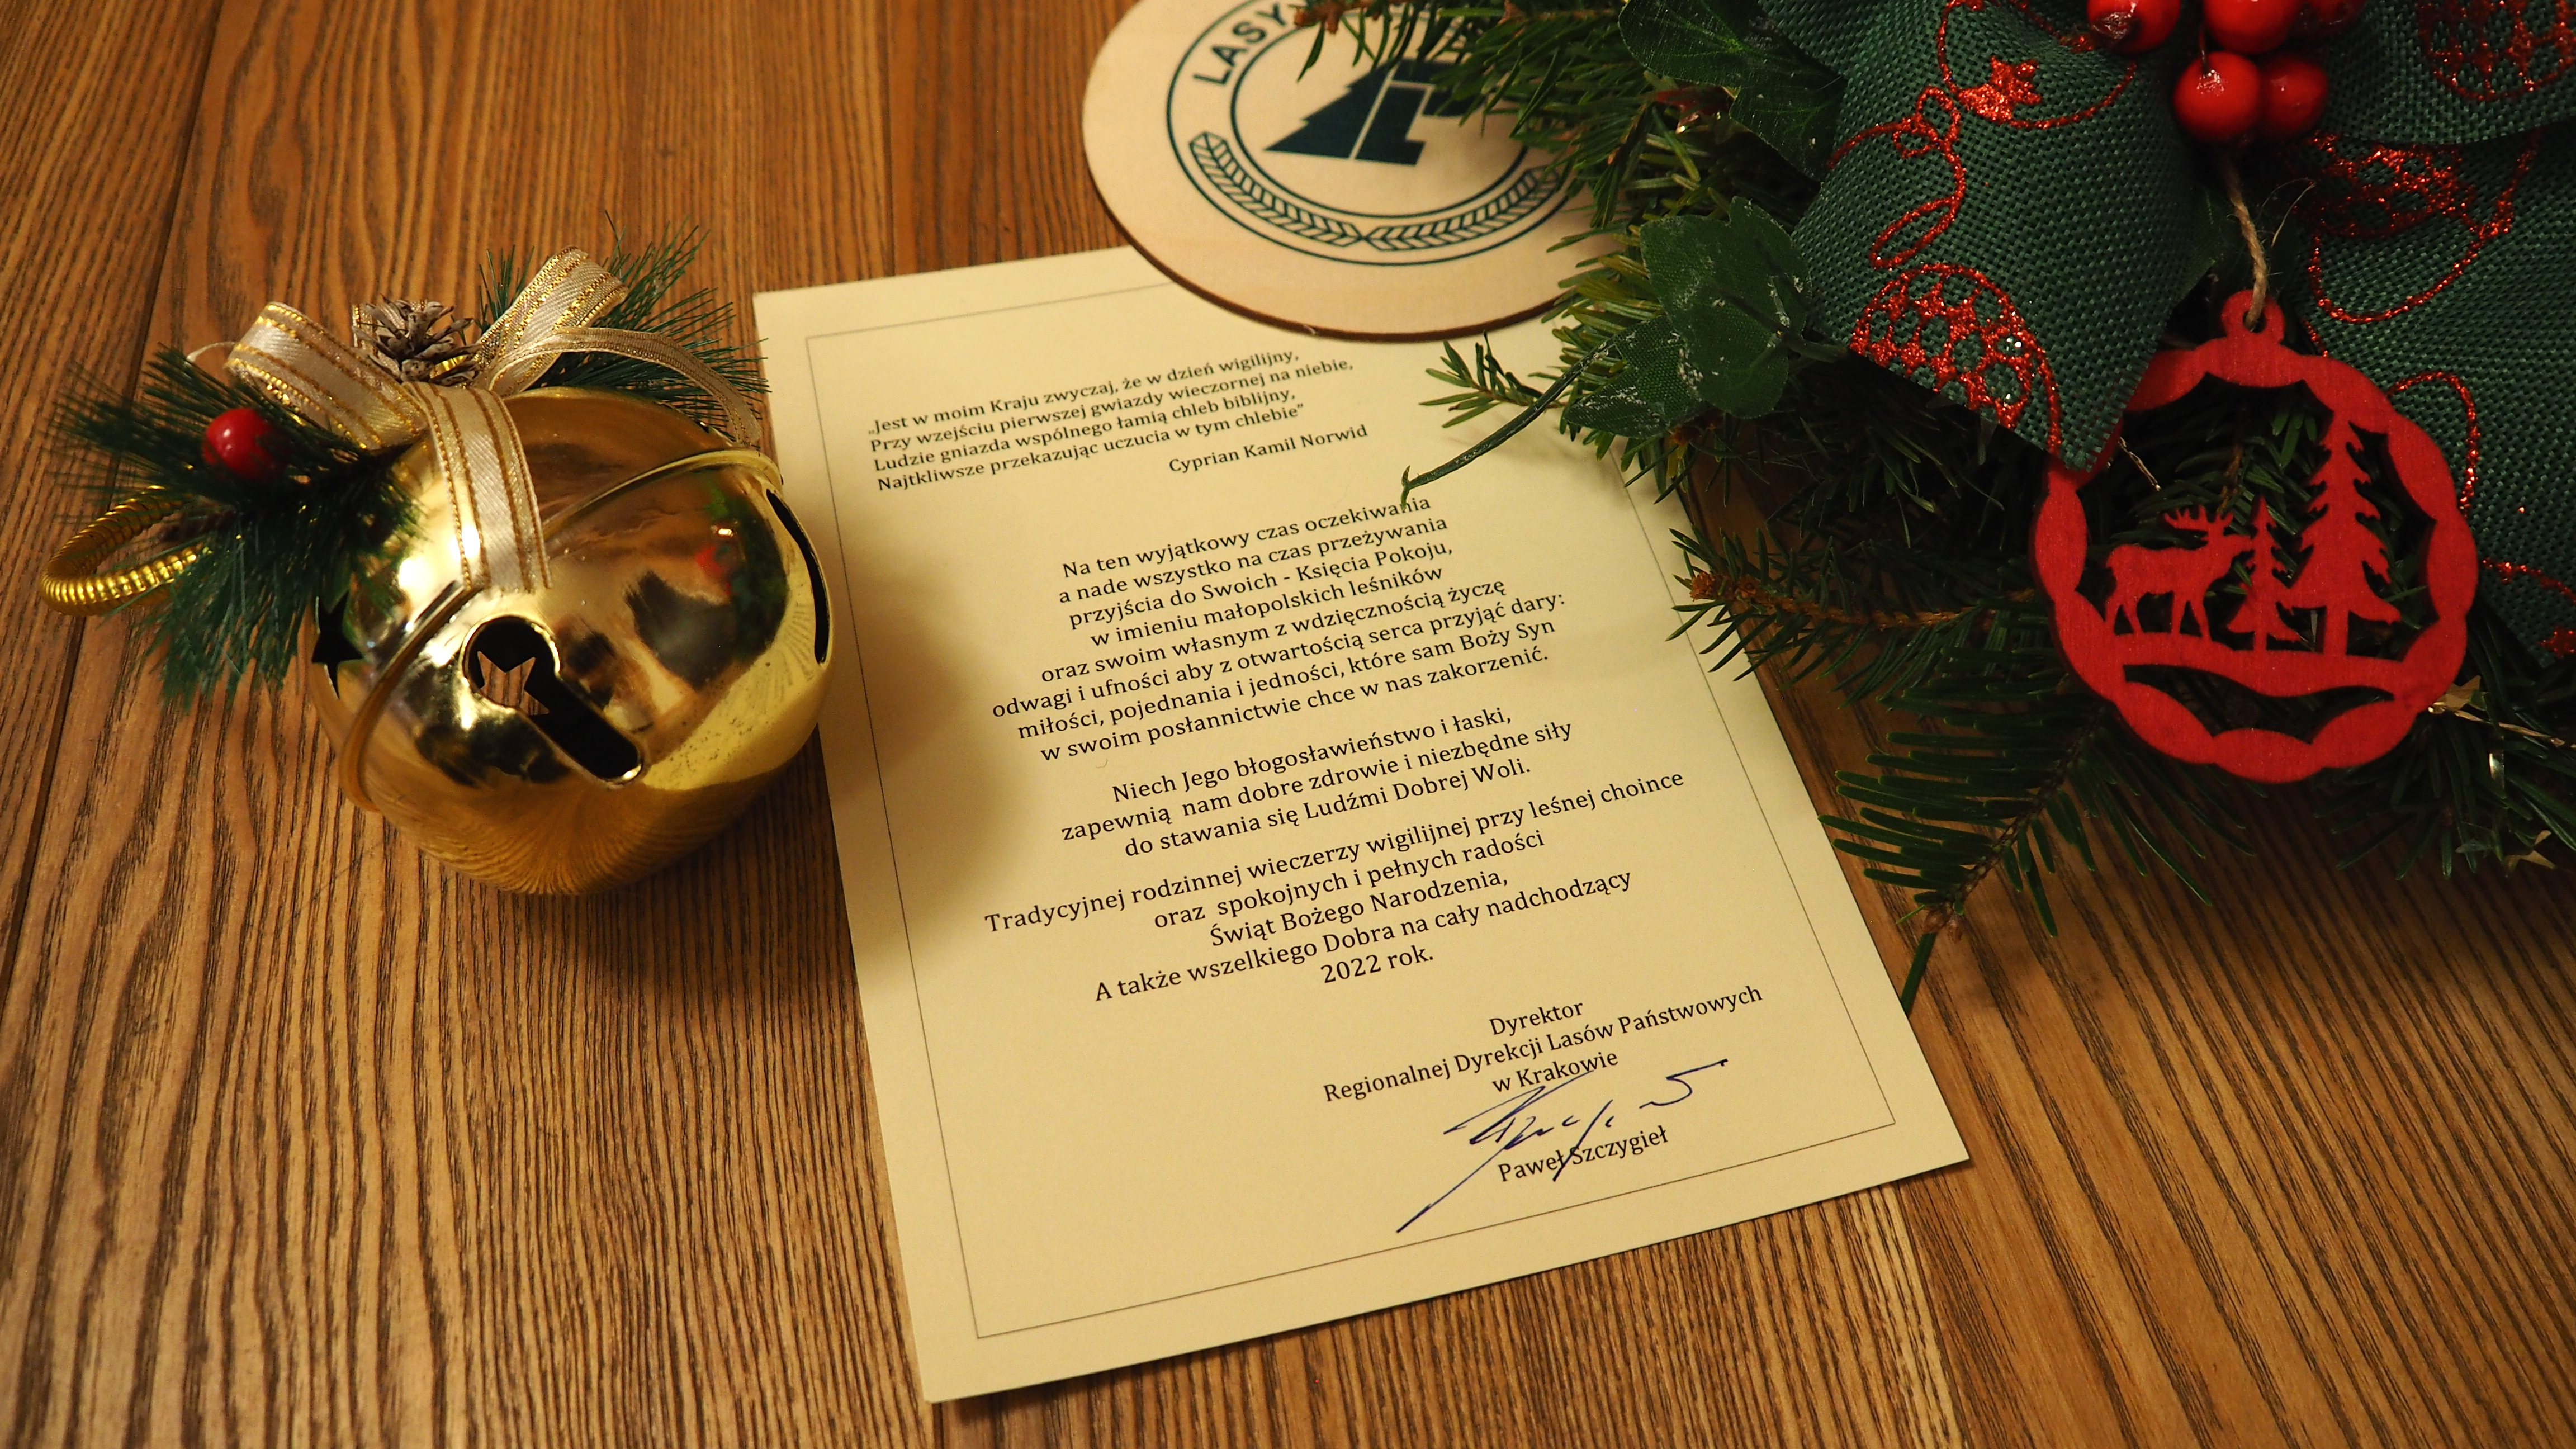 LASY
„Jest w moim Kraju zwyczaj, że w dzień wigilijny,
Przy wzejściu pierwszej gwiazdy wieczornej na niebie,
Ludzie gniazda wspólnego łamią chleb biblijny,
Najtkliwsze przekazując uczucia w tym chlebie”
Cyprian Kamil Norwid
Na ten wyjątkowy czas oczekiwania
a nade wszystko na czas przeżywania
przyjścia do Swoich - Księcia Pokoju,
w imieniu małopolskich leśników
oraz swoim własnym z wdzięcznością życzę
odwagi i ufności aby z otwartością serca przyjąć dary:
miłości, pojednania i jedności, które sam Boży Syn
w swoim posłannictwie chce w nas zakorzenić.
Niech Jego błogosławieństwo i łaski,
zapewnią nam dobre zdrowie i niezbędne siły
do stawania się Ludźmi Dobrej Woli.
Tradycyjnej rodzinnej wieczerzy wigilijnej przy leśnej choince
oraz spokojnych i pełnych radości
Świąt Bożego Narodzenia,
A także wszelkiego Dobra na cały nadchodzący
2022 rok.
Dyrektor
Regionalnej Dyrekcji Lasów Państwowych
w Krakowie
Paweł Szczygieł